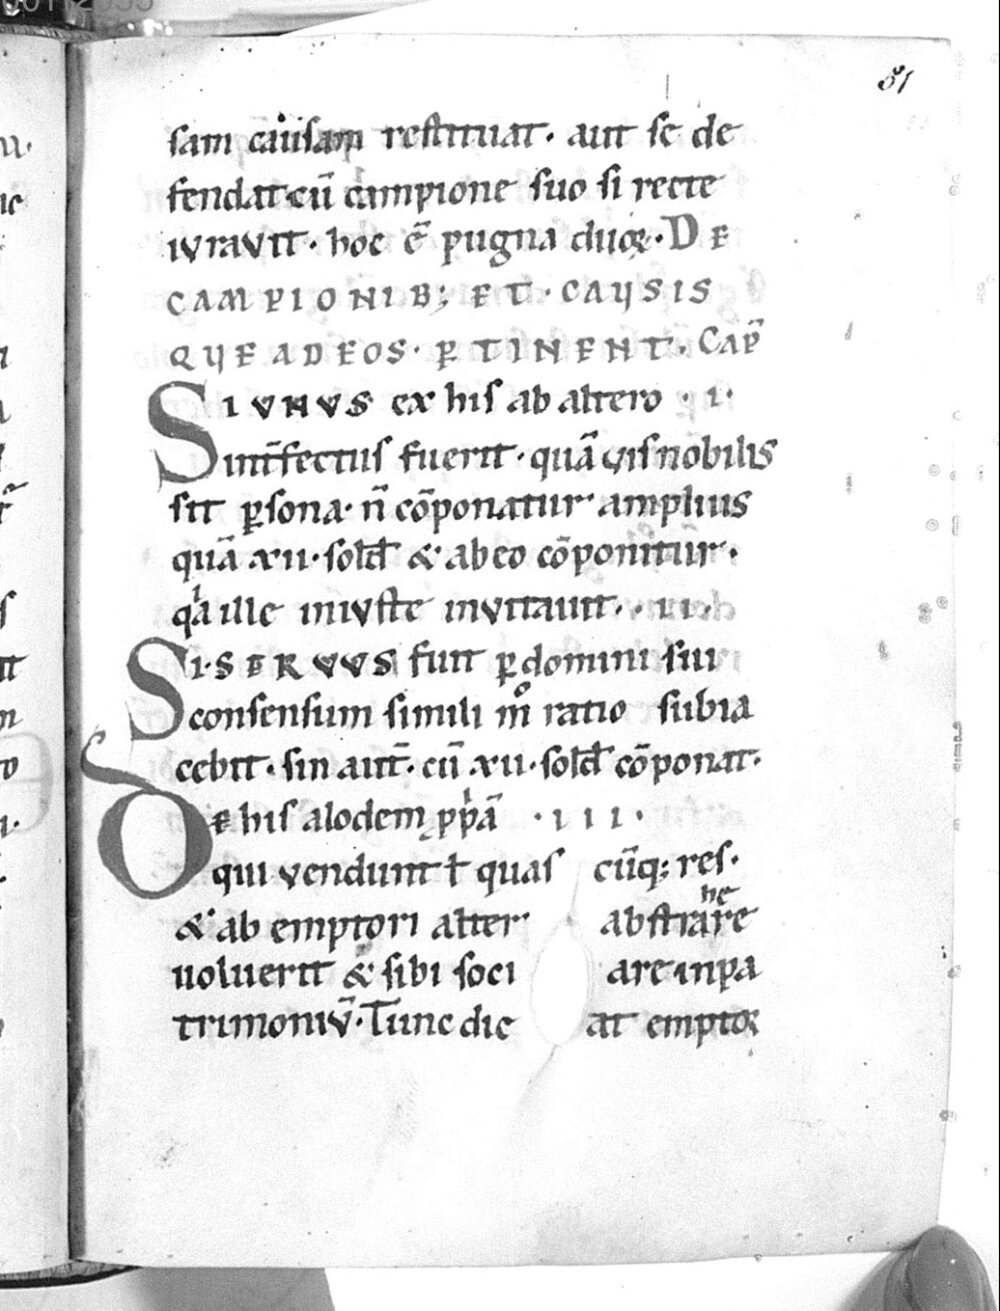 51
sam causam restituat. aut se de
fendat cū campione suo si recte
iuravit. hoc ē pugna duoꝝ. DE
CAMPIONIB; ET. CAUSIS
QUE AD EOS. P̱TINENT. CAP̄
SI UNUS ex his ab altero . i.
int̄fectus fuerit. quā vis nobilis
sit ꝑsona. n̄ cōponatur amplius
quā xii. sold̄ & ab eo cōponitur.
qͥa ille iniuste invitavit. . ii.
Si. SERVUS fuit ꝑ domini sui
consensum simili mͦ ratio subia
cebit. sin aut̄. cū xii. sold̄ cōponat.
De his alodem ꝓpͥā . iii.
qui vendunt ł quas cūq; res.
& ab emptori alter abstrahere
uoluerit & sibi soci are in pa
trimoniū. Tunc dic at emptoꝛ